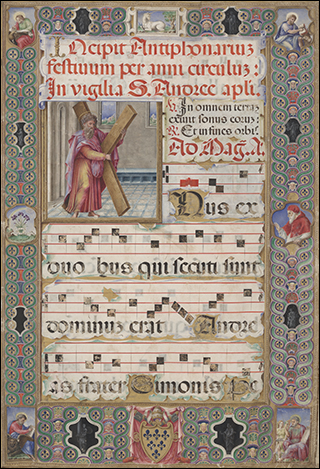 INcipit Antiphonarium
festivum per anni circulum:
In vigilia S. Andreę apli.
V. In omnem terrā
exivit sonus eorum:
R. Et in fines orbis.
Ad Mag. A.
Unus ex
duo bus qui secuti sunt
dominum erat Andre
as frater Simonis Pe